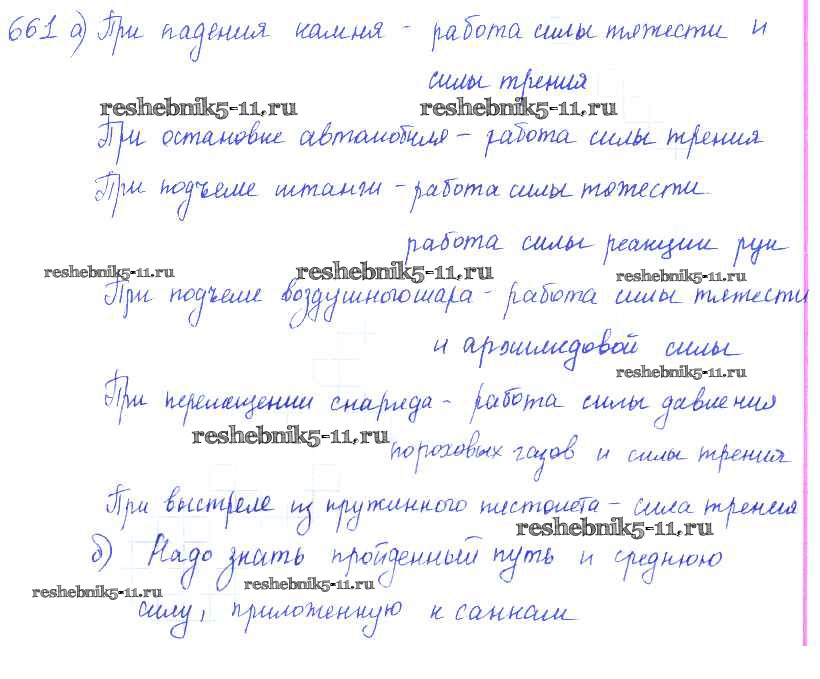 661 а) При падения камня - работа силы тяжести и
силы трения
reshebnik5-11.ru reshebnik5-11.ru
При остановке автомобиля - работа силы трения
При подъеме штанги - работа силы тяжести.
работа силы реакции рук
reshebnik5-11.ru reshebnik5-11.ru reshebnik5-11.ru
При подъеме воздушного шара - работа силы тяжести
и архимедовой силы
reshebnik5-11.ru
При перемещении снаряда - работа силы давления
reshebnik5-11.ru
пороховых газов и силы трения
При выстреле из пружинного пистолета - сила трения
reshebnik5-11.ru
б) Надо знать пройденный путь и среднюю
reshebnik5-11.ru reshebnik5-11.ru
силу, приложенную к санкам